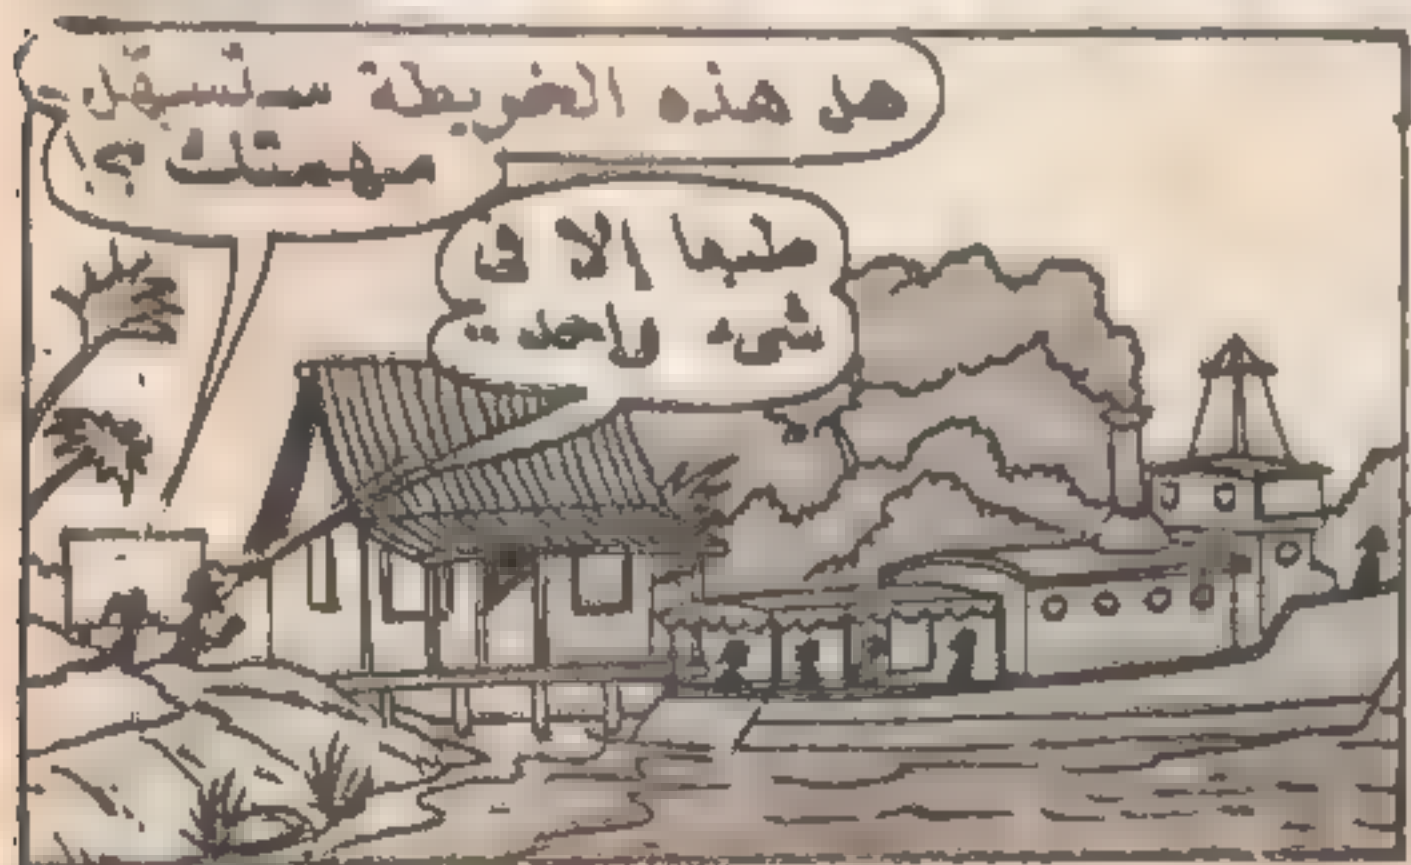 هل هذه الخريطة ستسهّل
مهمتك ؟
طبعا إلا فى
شىء واحد ..